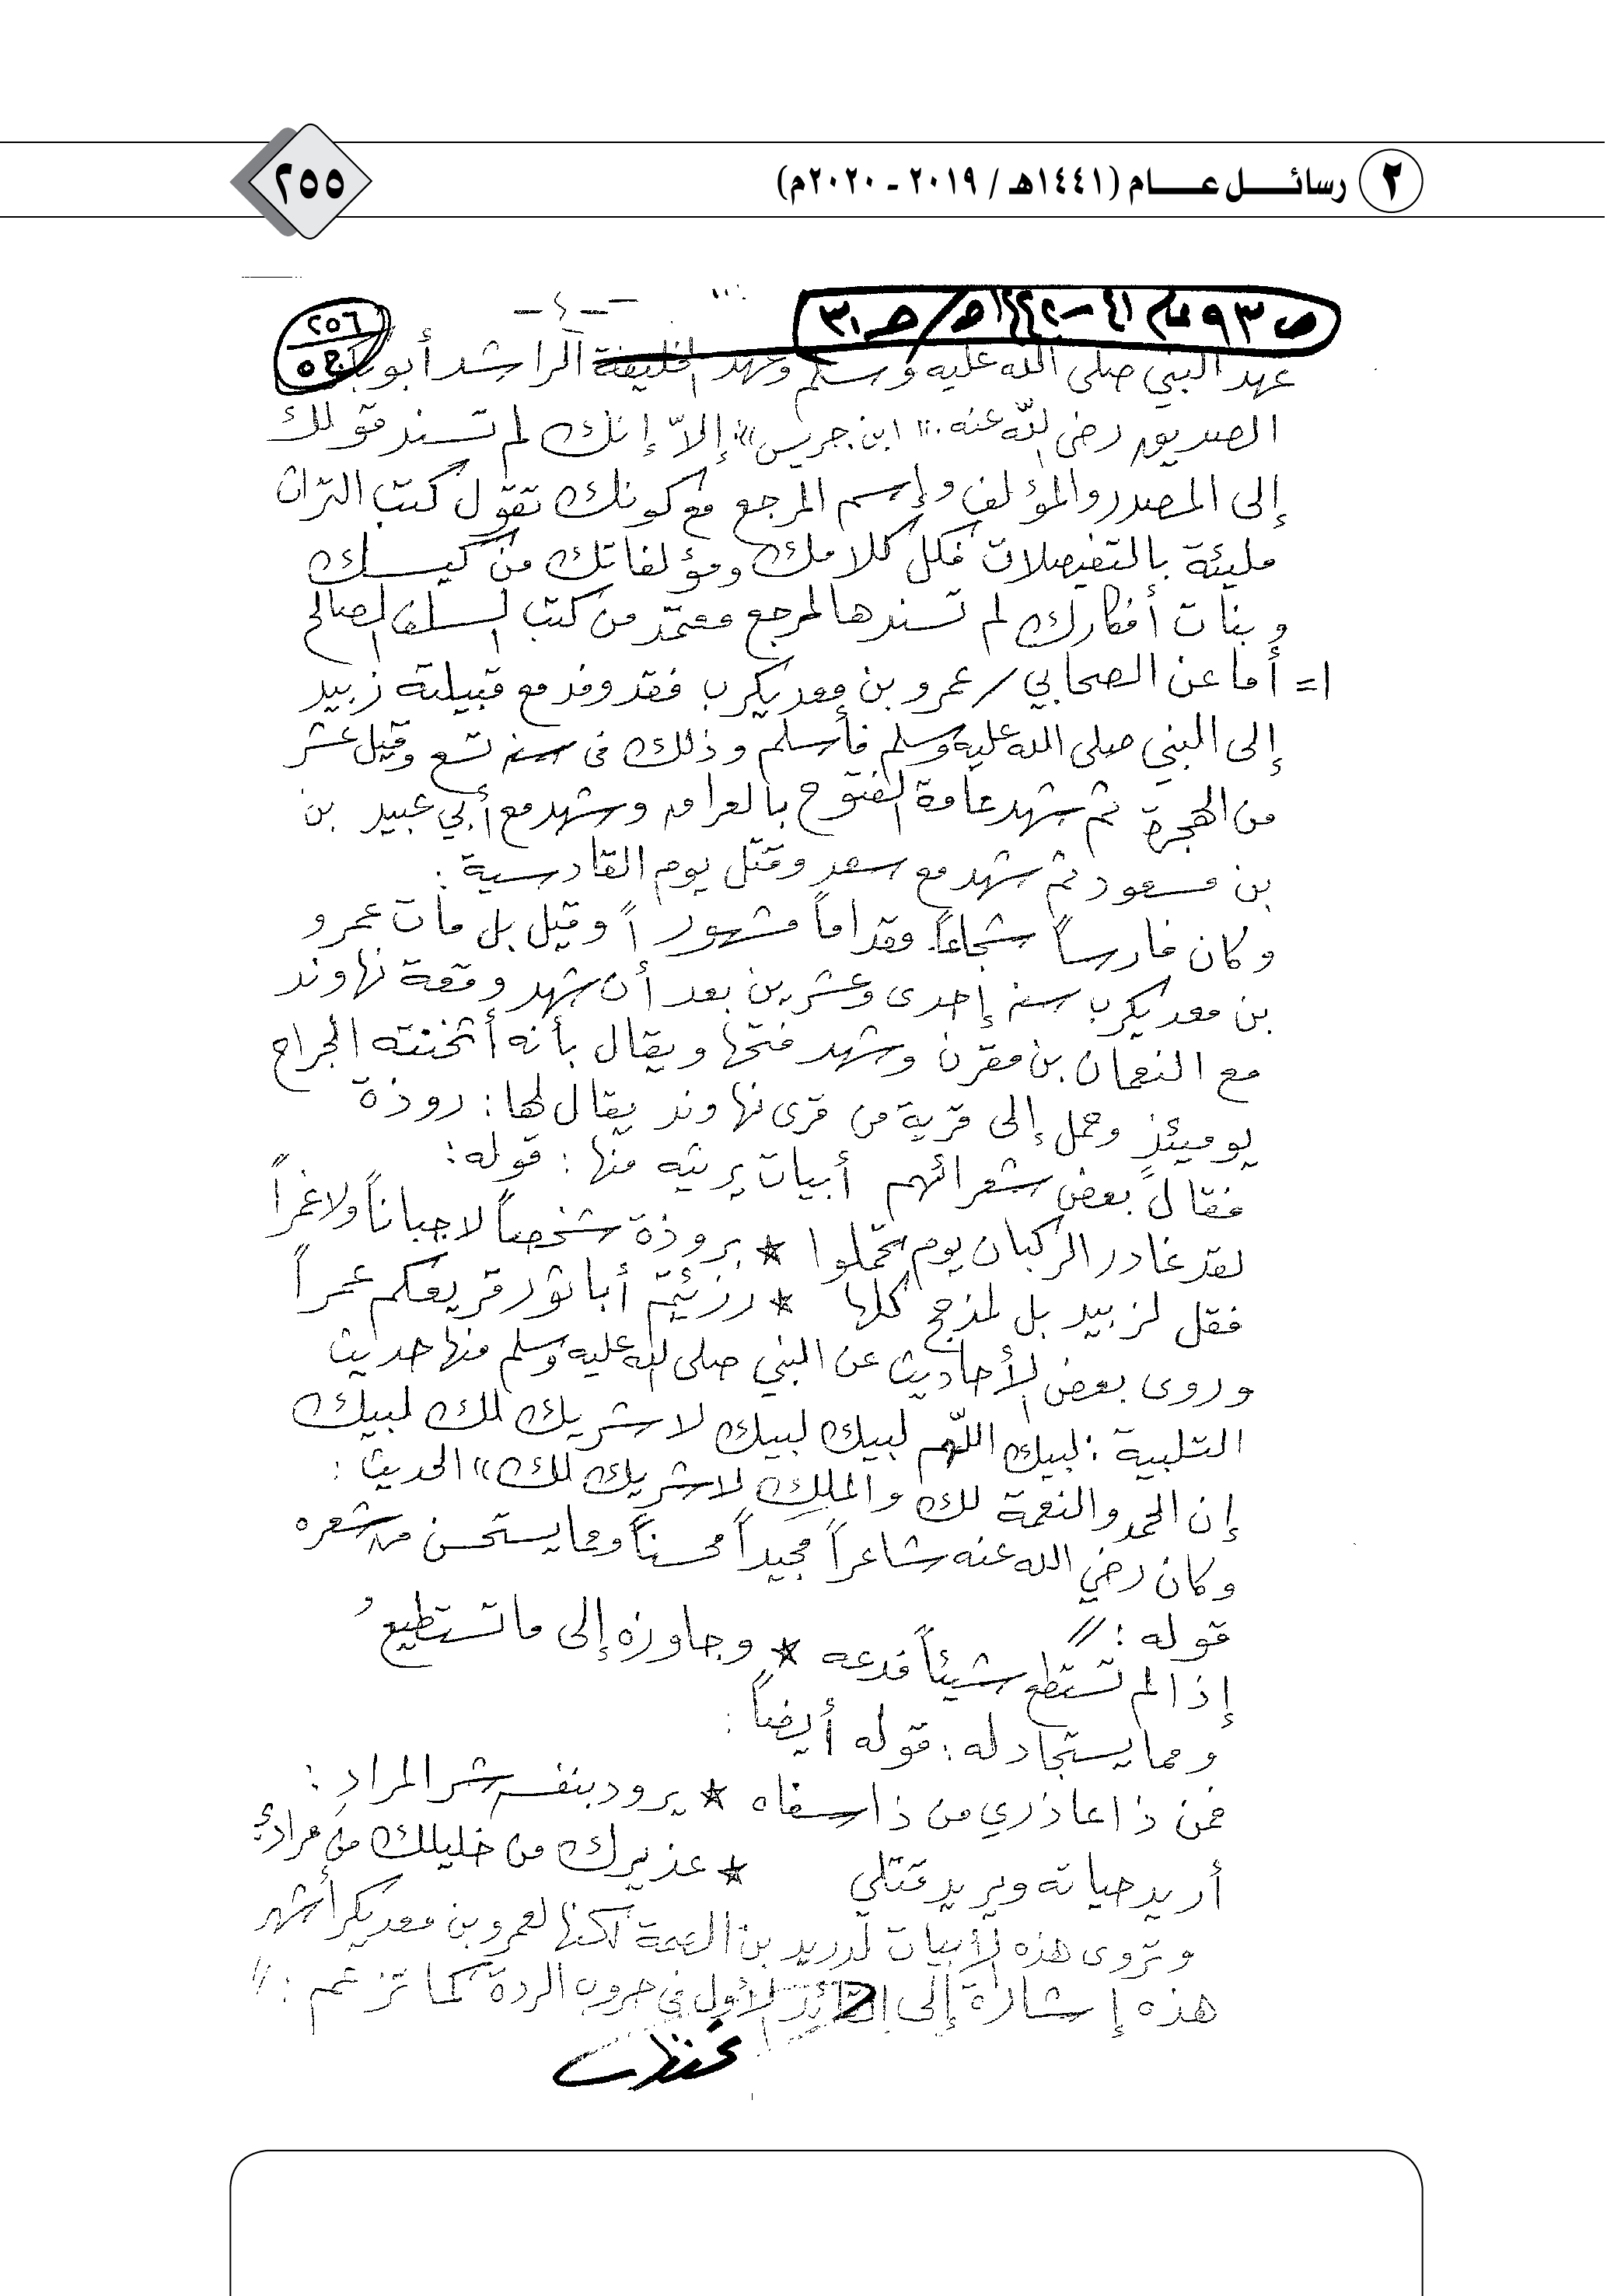 ٢ رسائل عام (١٤٤١هـ / ٢٠١٩ - ٢٠٢٠م)
٢٥٥
- ٤ -
٢٥٦
عهد النبي صلى الله عليه وسلم وعهد الخليفة الراشد أبو بكر
الصديق رضي الله عنه .)) ابن جريس)) إلاّ إنك لم تسند قولك
إلى المصدر والمؤلف وإسم المرجع مع كونك تقول كتب التراث
مليئة بالتفصيلات فكل كلامك ومؤلفاتك من كيسك
وبنات أفكارك لم تسندها لمرجع معتمد من كتب السلف الصالح
١= أما عن الصحابي / عمرو بن معد يكرب فقد وفد مع قبيلته زبيد
إلى النبي صلى الله عليه وسلم فأسلم وذلك في سنه تسع وقيل عشر
من الهجرة ثم شهد عامة الفتوح بالعراق وشهد مع أبي عبيد بن
بن مسعود ثم شهد مع سعد وقتل يوم القادسية :
وكان فارساً شجاعاً مقداماً مشهوراً وقيل بل مات عمرو
بن معد يكرب سنه إحدى وعشرين بعد أن شهد وقعة نهاوند
مع النعمان بن مقرن وشهد فتحها ويقال بأنه أثخنته الجراح
يوميئذٍ وحمل إلى قرية من قرى نهاوند يقال لها : روذة
فقال بعض شعرائهم أبيات يرثيه منها : قوله :
لقد غادر الركبان يوم تحملوا * بروذة شخصاً لا جباناً ولا غمراً
فقل لزبيد بل لمذحج كلها * رزئتم أبا ثور قريعكم عمراً
وروى بعض الأحاديث عن النبي صلى الله عليه وسلم منها حديث
التلبية : لبيك اللّهم لبيك لبيك لا شريك لك لبيك
إن الحمد والنعمة لك والملك لا شريك لك )) الحديث :
وكان رضي الله عنه شاعراً مجيداً محسناً ومما يستحسن من شعره
قوله : //
إذا لم تستطع شيئاً فدعه * وجاوزه إلى ما تستطيعُ
ومما يستجاد له : قوله أيضاً :
فمن ذا عاذري من ذا سفاه * يرود بنفسه شر المراد :
أريد حياته ويريد قتلي * عذيرك من خليلك من مراد
وتروى هذه الأبيات لدريد بن الصمة لكنها لعمرو بن معد يكرب أشهر
هذه إشارة إلى القائد الأول في حروب الردة كما تزعم : //